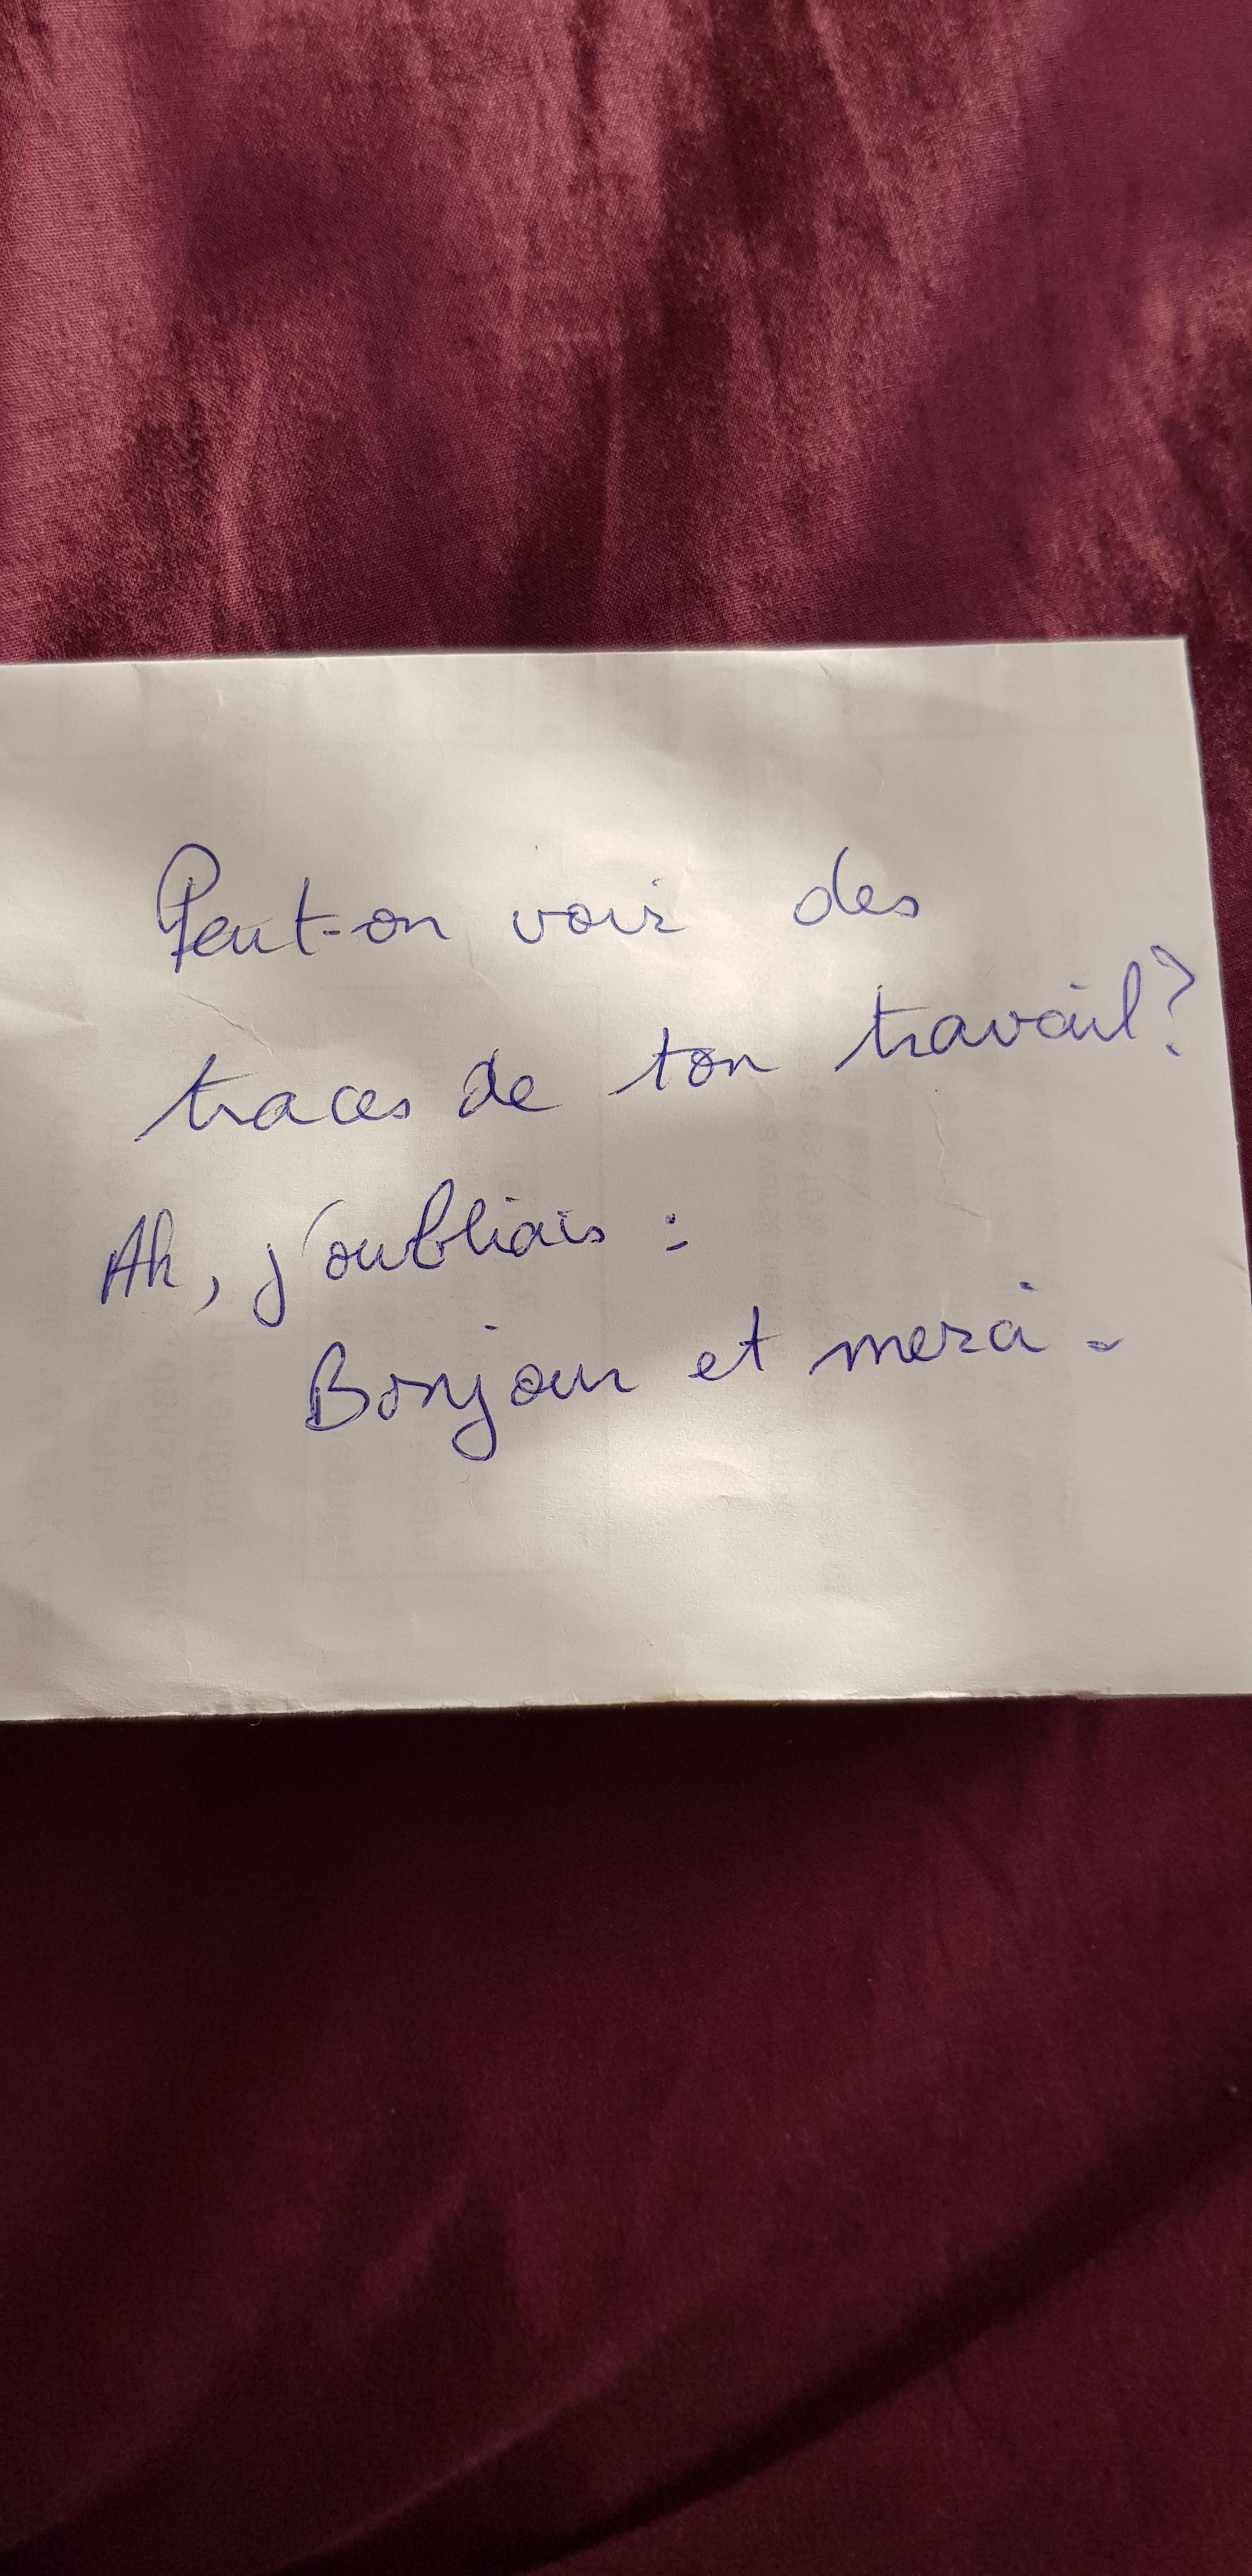 Peut-on voir des
traces de ton travail?
Ah, j'oubliais :
Bonjour et merci.